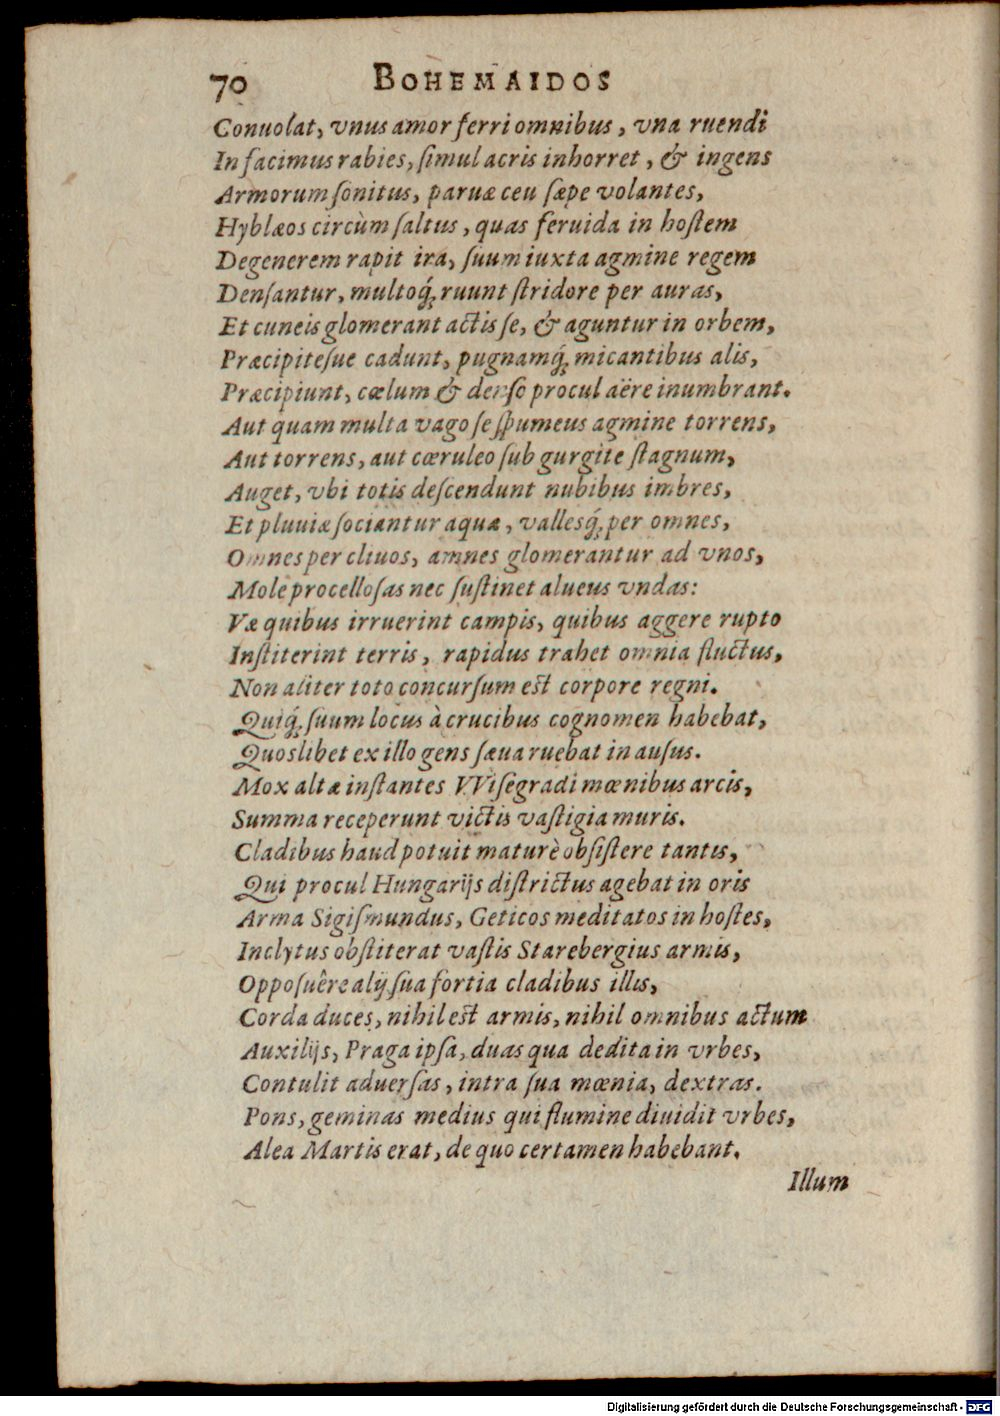 70 BOHEMAIDOS
Conuolat, vnus amor ferri omnibus, vna ruendi
In facimus rabies, ſimul acris inhorret, & ingens
Armorum ſonitus, paruæ ceu ſæpe volantes,
Hyblæos circùm ſaltus, quas feruida in hoſtem
Degenerem rapit ira, ſuum iuxta agmine regem
Denſantur, multoq́; ruunt ſtridore per auras,
Et cuneis glomerant actis ſe, & aguntur in orbem,
Præcipiteſue cadunt, pugnamq́; micantibus alis,
Præcipiunt, cœlum & denſo procul aëre inumbrant.
Aut quam multa vago ſe ſpumeus agmine torrens,
Aut torrens, aut cœruleo ſub gurgite ſtagnum,
Auget, vbi totis deſcendunt nubibus imbres,
Et pluuiæ ſociantur aquæ, vallesq́; per omnes,
Omnes per cliuos, amnes glomerantur ad vnos,
Mole procelloſas nec ſuſtinet alueus vndas:
Væ quibus irruerint campis, quibus aggere rupto
Inſtiterint terris, rapidus trahet omnia fluctus,
Non aliter toto concurſum eſt corpore regni.
Quiq́; ſuum locus à crucibus cognomen habebat,
Quoslibet ex illo gens ſæua ruebat in auſus.
Mox altæ inſtantes VViſegradi mœnibus arcis,
Summa receperunt victis vaſtigia muris.
Cladibus haud potuit maturè obſiſtere tantis,
Qui procul Hungarijs diſtrictus agebat in oris
Arma Sigiſmundus, Geticos meditatos in hoſtes,
Inclytus obſtiterat vaſtis Starebergius armis,
Oppoſuêre alij ſua fortia cladibus illis,
Corda duces, nihil eſt armis, nihil omnibus actum
Auxilijs, Praga ipſa, duas qua dedita in vrbes,
Contulit aduerſas, intra ſua mœnia, dextras.
Pons, geminas medius qui flumine diuidit vrbes,
Alea Martis erat, de quo certamen habebant.
Illum
Digitalisierung gefördert durch die Deutsche Forschungsgemeinschaft - DFG